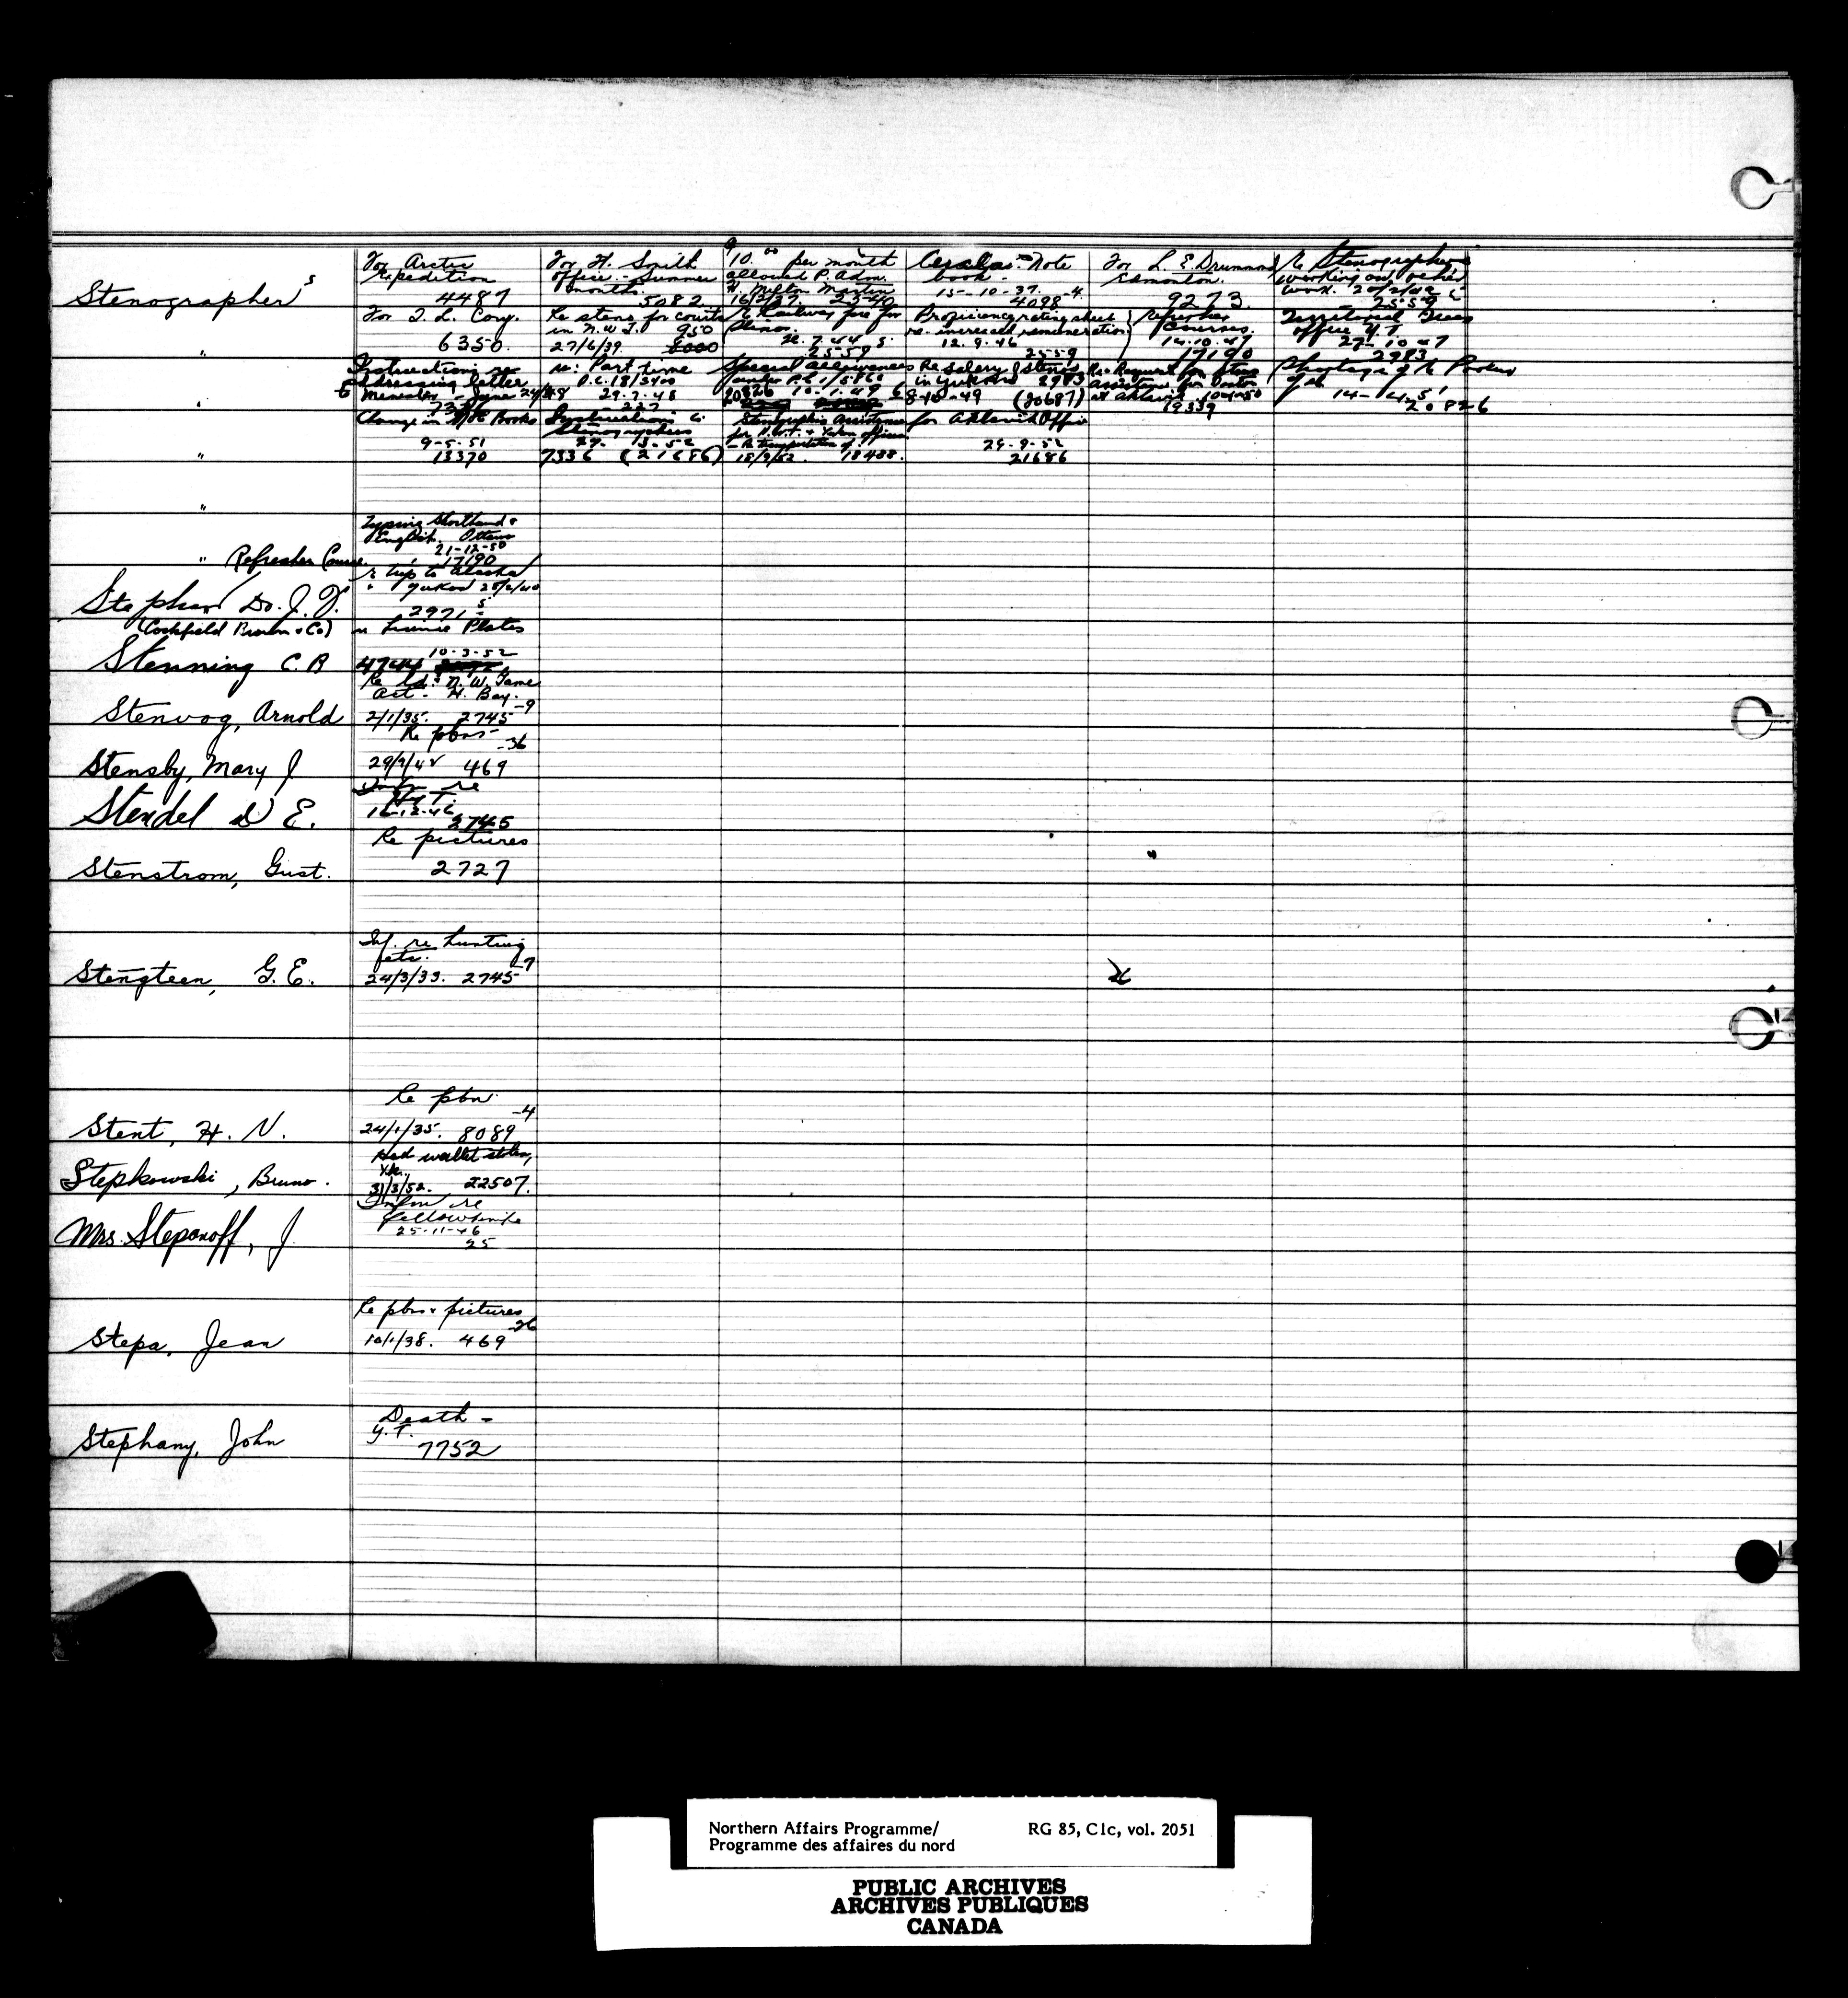 Stenographers
For Arctic
Expedition
4487
For H. Smith
office - Summer
months.
5082
10.00 per month
allowed P. Adm.
H. Milton Martin
16/2/37. 2540
Note
book -
15-10-37. -4
4098
For L. E. Drummond
Edmonton.
9273.
Re Stenographers
working on other
work. 20/2/42
2559
"
For T. L. Cory.
6350.
Re stens for courts
in N.W.T. 950
27/6/39.
Re Railway fare for
2559
Proficiency rating sheet
re. increased remuneration
12.9.46
2559
Refresher
Courses.
14.10.47
17190
Territorial
office Y.T.
27-10-47
2983
"
Instructions re
addressing letter
June
re: Part time
P.C. 18/3400
29-7-48
227
Special allowances
under P.C. 1/5860
20826 10.1.49
Re Salary of Stenos
in Yukon 2983
8-10-49 (20687)
Re Request for
assistance for Doctor
at Aklavik 10-4-50
19339
Shortage of
14-4-51
20826
"
Change in Books
9-5-51
13370
Instructions
Stenographers
27. 3-52
7336 (21686)
Stenographic Assistance
for N.W.T. & Yukon offices
- Re transportation of
18/9/52. 18488.
for Aklavik Office
29-9-52
21686
"
" Refresher Course.
Typing Shorthand &
English. Ottawa
21-12-50
17190
Stephen Dr. J. D.
r trip to Alaska
" Yukon
2971
(Cockfield Brown & Co)
Stenning C. B
re License Plates
10-3-52
Stenvog, Arnold
Re N.W. Game
Act - H. Bay.
2/1/35. 2745-9
Stensby, Mary J
Re pbns
-36
29/9/42 469
Stendel D E.
Infn re
N.W.T.
16-12-46
2745
Stenstrom, Gust.
Re pictures
2727
Stengteen, G. E.
Inf. re hunting
etc.
-7
24/3/33. 2745
Stent, H. V.
Re pbn
-4
24/1/35. 8089
Stepkowski, Bruno.
Had wallet stolen,
Yk.
31/3/52. 22507.
Mrs. Steponoff, J.
Infn re
Yellowknife
25-11-46
25
Stepa, Jean
Re pbns & pictures
-26
10/1/38. 469
Stephany, John
Death -
Y.T.
7752
Northern Affairs Programme/
Programme des affaires du nord
RG 85, C1c, vol. 2051
PUBLIC ARCHIVES
ARCHIVES PUBLIQUES
CANADA